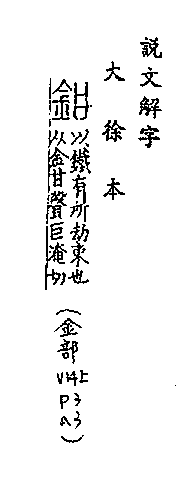 説文解字
大徐本
鉗
以鐵有所劫束也
从金甘聲巨淹切
(金部 V14上 P3 )